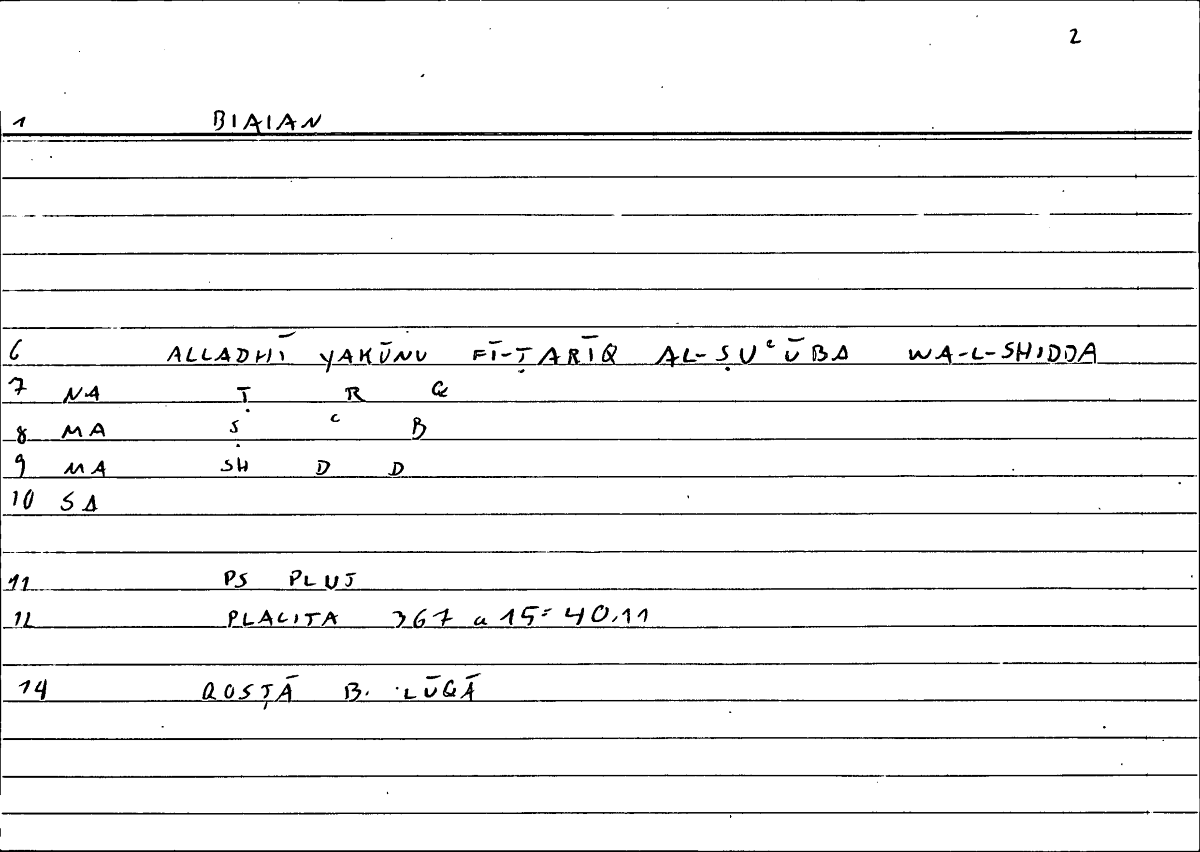 2
1 BIAIAN
6 ALLADHĪ YAKŪNU FĪ-ṬARĪQ AL-ṢUʿŪBA WA-L-SHIDDA
7 NA Ṭ R Q
8 MA Ṣ ʿ B
9 MA SH D D
10 SA
11 PS PLUT
12 PLACITA 367 a 15 = 40.11
14 QOSṬĀ B. LŪQĀ